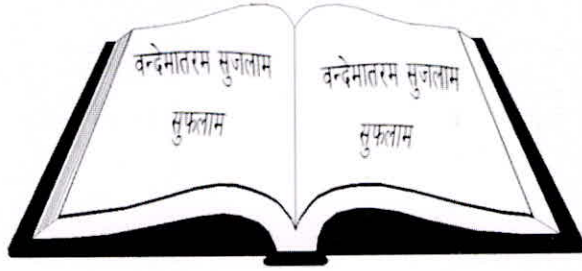 वन्देमातरम सुजलाम
सुफलाम
वन्देमातरम सुजलाम
सुफलाम